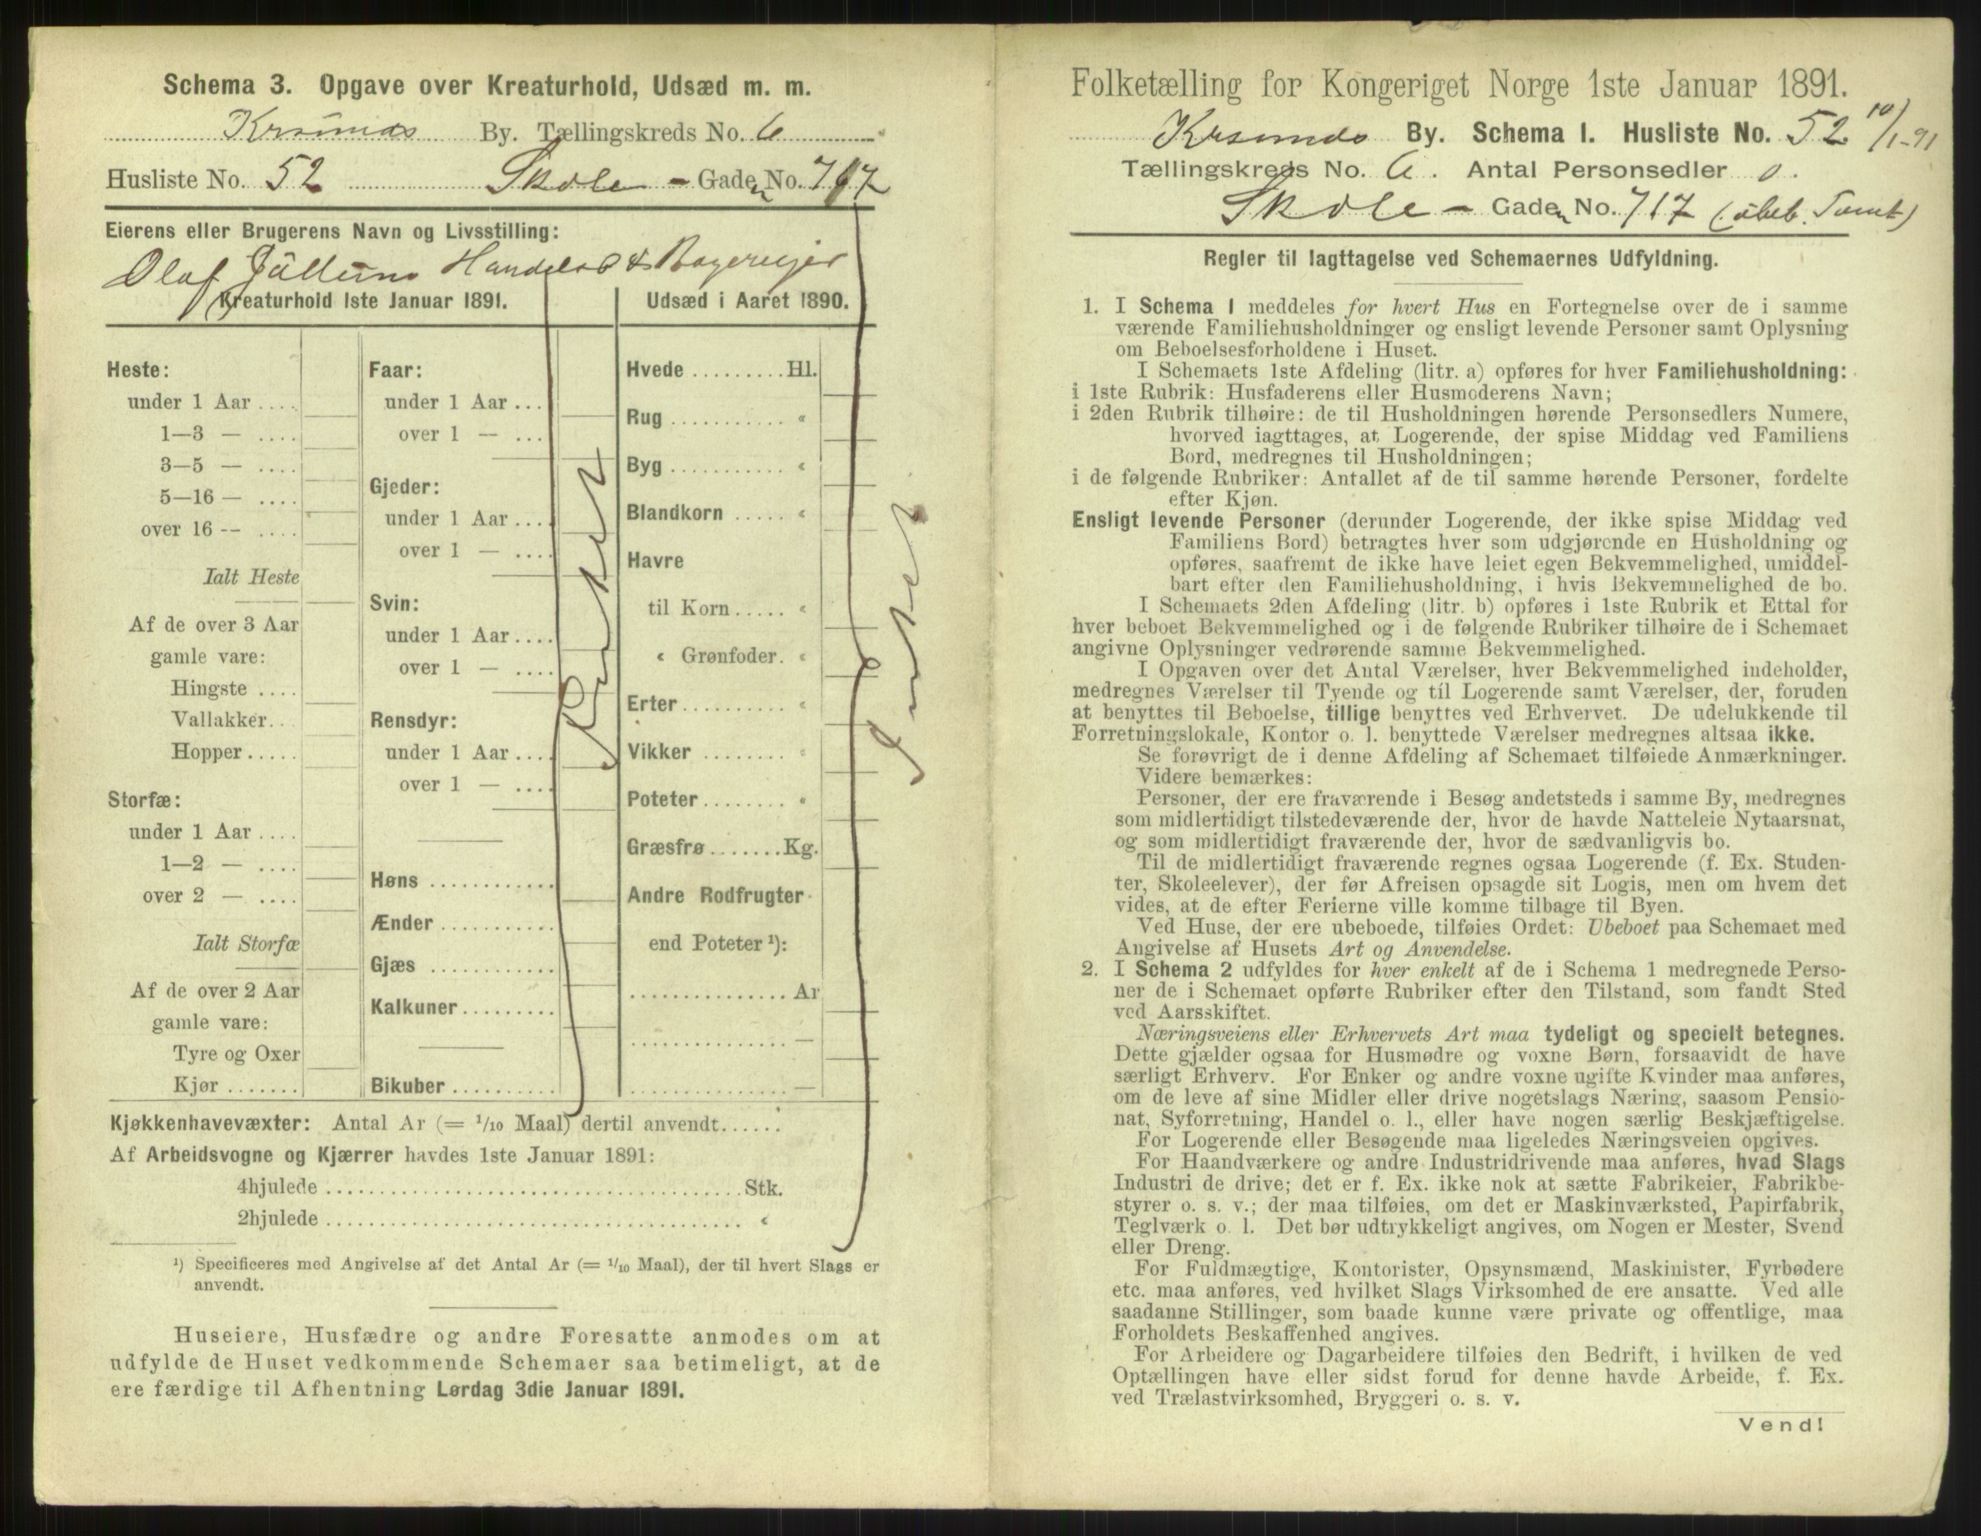 Schema 3. Opgave over Kreaturhold, Udsæd m. m.
Krsunds By. Tællingskreds No. 6
Husliste No. 52 Skole - Gaden No. 717
Eierens eller Brugerens Navn og Livsstilling:
Olaf Handels & Bagereijer
Kreaturhold 1ste Januar 1891.
Heste:
under 1 Aar ....
1—3 — ....
3—5 — ....
5—16 — ....
over 16 -- ....
Ialt Heste
Af de over 3 Aar
gamle vare:
Hingste ....
Vallakker..
Hopper.....
Storfæ:
under 1 Aar ....
1—2 — ....
over 2 — ....
Ialt Storfæ
Af de over 2 Aar
gamle vare:
Tyre og Oxer
Kjør .......
Faar:
under 1 Aar ...
over 1 — ...
Gjeder:
under 1 Aar ...
over 1 — ...
Svin:
under 1 Aar ....
over 1 — ....
Rensdyr:
under 1 Aar ....
over 1 — ....
Høns ............
Ænder ...........
Gjæs ............
Kalkuner.........
Bikuber ..........
Intet
Udsæd i Aaret 1890.
Hvede .........Hl.
Rug ........... «
Byg ........... «
Blandkorn ..... «
Havre
til Korn..... «
« Grønfoder. «
Erter.......... «
Vikker ........ «
Poteter........ «
Græsfrø.......Kg.
Andre Rodfrugter
end Poteter ¹):
...............Ar
............... —
............... —
Intet
Kjøkkenhavevæxter: Antal Ar (= 1/10 Maal) dertil anvendt......
Af Arbeidsvogne og Kjærrer havdes 1ste Januar 1891:
4hjulede ........................................Stk.
2hjulede ........................................ «
¹) Specificeres med Angivelse af det Antal Ar (= 1/10 Maal), der til hvert Slags er
anvendt.
Huseiere, Husfædre og andre Foresatte anmodes om at
udfylde de Huset vedkommende Schemaer saa betimeligt, at de
ere færdige til Afhentning Lørdag 3die Januar 1891.
Folketælling for Kongeriget Norge 1ste Januar 1891.
Krsunds By. Schema 1. Husliste No. 52 10/1-91
Tællingskreds No. 6. Antal Personsedler 0.
Skole - Gaden No. 717 (ubeb. Tomt)
Regler til Iagttagelse ved Schemaernes Udfyldning.
1. I Schema 1 meddeles for hvert Hus en Fortegnelse over de i samme
værende Familiehusholdninger og ensligt levende Personer samt Oplysning
om Beboelsesforholdene i Huset.
I Schemaets 1ste Afdeling (litr. a) opføres for hver Familiehusholdning:
i 1ste Rubrik: Husfaderens eller Husmoderens Navn;
i 2den Rubrik tilhøire: de til Husholdningen hørende Personsedlers Numere,
hvorved iagttages, at Logerende, der spise Middag ved Familiens
Bord, medregnes til Husholdningen;
i de følgende Rubriker: Antallet af de til samme hørende Personer, fordelte
efter Kjøn.
Ensligt levende Personer (derunder Logerende, der ikke spise Middag ved
Familiens Bord) betragtes hver som udgjørende en Husholdning og
opføres, saafremt de ikke have leiet egen Bekvemmelighed, umiddel-
bart efter den Familiehusholdning, i hvis Bekvemmelighed de bo.
I Schemaets 2den Afdeling (litr. b) opføres i 1ste Rubrik et Ettal for
hver beboet Bekvemmelighed og i de følgende Rubriker tilhøire de i Schemaet
angivne Oplysninger vedrørende samme Bekvemmelighed.
I Opgaven over det Antal Værelser, hver Bekvemmelighed indeholder,
medregnes Værelser til Tyende og til Logerende samt Værelser, der, foruden
at benyttes til Beboelse, tillige benyttes ved Erhvervet. De udelukkende til
Forretningslokale, Kontor o. l. benyttede Værelser medregnes altsaa ikke.
Se forøvrigt de i denne Afdeling af Schemaet tilføiede Anmærkninger.
Videre bemærkes:
Personer, der ere fraværende i Besøg andetsteds i samme By, medregnes
som midlertidigt tilstedeværende der, hvor de havde Natteleie Nytaarsnat,
og som midlertidigt fraværende der, hvor de sædvanligvis bo.
Til de midlertidigt fraværende regnes ogsaa Logerende (f. Ex. Studen-
ter, Skoleelever), der før Afreisen opsagde sit Logis, men om hvem det
vides, at de efter Ferierne ville komme tilbage til Byen.
Ved Huse, der ere ubeboede, tilføies Ordet: Ubeboet paa Schemaet med
Angivelse af Husets Art og Anvendelse.
2. I Schema 2 udfyldes for hver enkelt af de i Schema 1 medregnede Perso-
ner de i Schemaet opførte Rubriker efter den Tilstand, som fandt Sted
ved Aarsskiftet.
Næringsveiens eller Erhvervets Art maa tydeligt og specielt betegnes.
Dette gjælder ogsaa for Husmødre og voxne Børn, forsaavidt de have
særligt Erhverv. For Enker og andre voxne ugifte Kvinder maa anføres,
om de leve af sine Midler eller drive nogetslags Næring, saasom Pensio-
nat, Syforretning, Handel o. l., eller have nogen særlig Beskjæftigelse.
For Logerende eller Besøgende maa ligeledes Næringsveien opgives.
For Haandværkere og andre Industridrivende maa anføres, hvad Slags
Industri de drive; det er f. Ex. ikke nok at sætte Fabrikeier, Fabrikbe-
styrer o. s. v.; der maa tilføies, om det er Maskinværksted, Papirfabrik,
Teglværk o. l. Det bør udtrykkeligt angives, om Nogen er Mester, Svend
eller Dreng.
For Fuldmægtige, Kontorister, Opsynsmænd, Maskinister, Fyrbødere
etc. maa anføres, ved hvilket Slags Virksomhed de ere ansatte. Ved alle
saadanne Stillinger, som baade kunne være private og offentlige, maa
Forholdets Beskaffenhed angives.
For Arbeidere og Dagarbeidere tilføies den Bedrift, i hvilken de ved
Optællingen have eller sidst forud for denne havde Arbeide, f. Ex.
ved Trælastvirksomhed, Bryggeri o. s. v.
Vend!